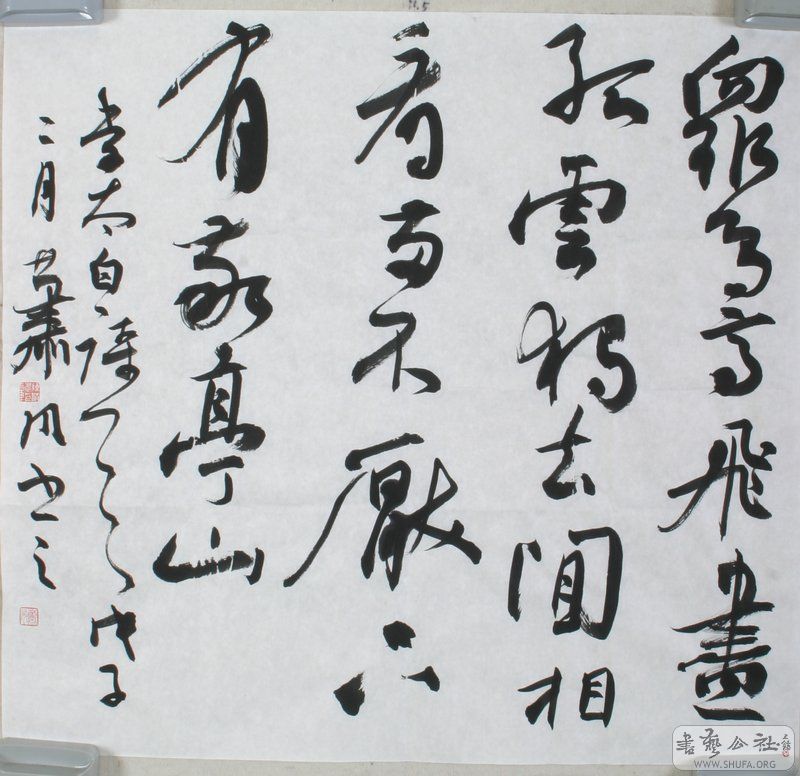 眾鳥高飛盡
孤雲獨去閒相
看兩不厭只
有敬亭山
李太白詩 戊子
二月 蕭 书之
書藝公社
WWW.SHUFA.ORG